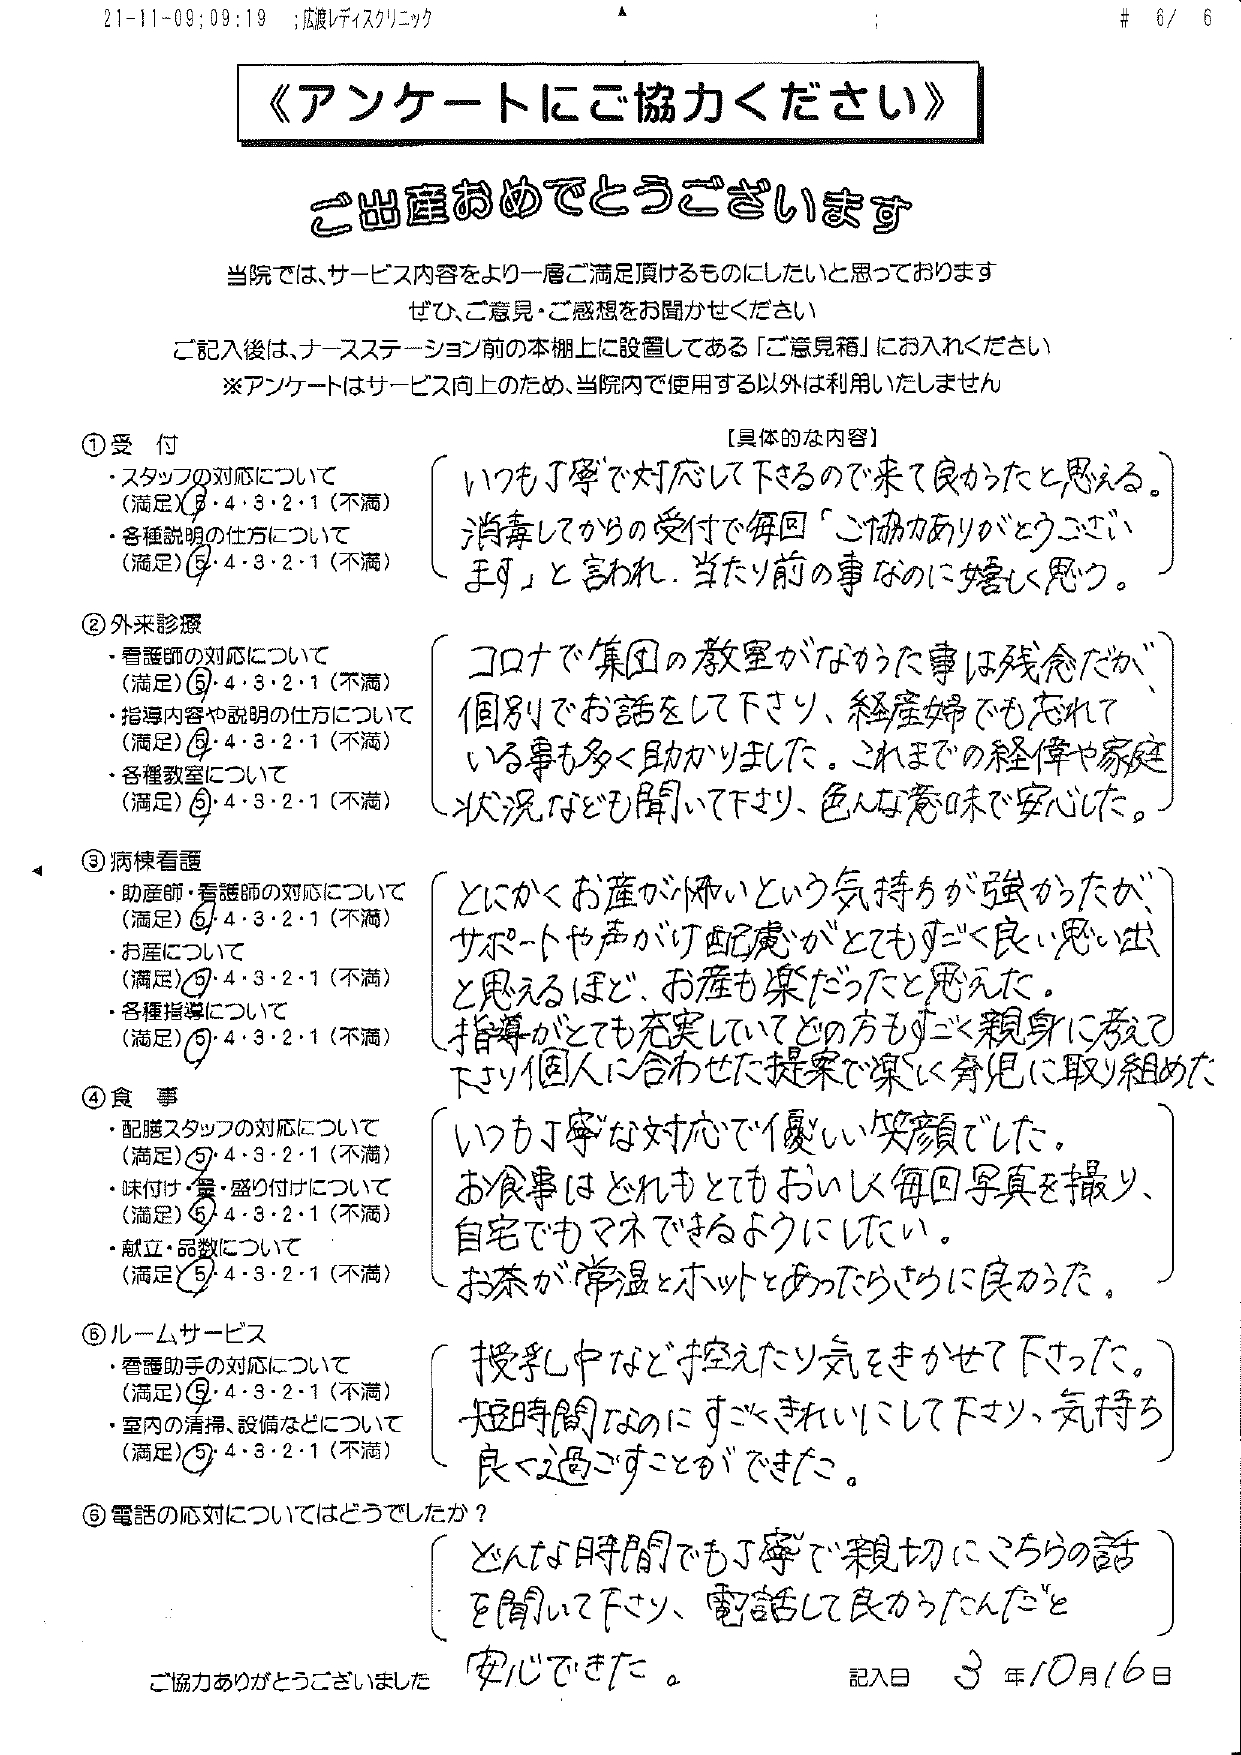 21-11-09;09:19 ;広渡レディスクリニック ; # 6/ 6
《アンケートにご協力ください》
ご出産おめでとうございます
当院では、サービス内容をより一層ご満足頂けるものにしたいと思っております
ぜひ、ご意見・ご感想をお聞かせください
ご記入後は、ナースステーション前の本棚上に設置してある「ご意見箱」にお入れください
※アンケートはサービス向上のため、当院内で使用する以外は利用いたしません
【具体的な内容】
①受 付
・スタッフの対応について
(満足) 5・4・3・2・1 (不満)
・各種説明の仕方について
(満足) 5・4・3・2・1 (不満)
いつも丁寧で対応して下さるので来て良かったと思える。
消毒してからの受付で毎回「ご協力ありがとうござい
ます」と言われ、当たり前の事なのに嬉しく思う。
②外来診療
・看護師の対応について
(満足) 5・4・3・2・1 (不満)
・指導内容や説明の仕方について
(満足) 5・4・3・2・1 (不満)
・各種教室について
(満足) 5・4・3・2・1 (不満)
コロナで集団の教室がなかった事は残念だが、
個別でお話をして下さり、経産婦でも忘れて
いる事も多く助かりました。これまでの経偉や家庭
状況なども聞いて下さり、色んな意味で安心した。
③病棟看護
・助産師・看護師の対応について
(満足) 5・4・3・2・1 (不満)
・お産について
(満足) 5・4・3・2・1 (不満)
・各種指導について
(満足) 5・4・3・2・1 (不満)
とにかくお産が怖いという気持ちが強かったが、
サポートや声がけ配慮がとてもすごく良い思い出
と思えるほど、お産も楽だったと思えた。
指導がとても充実していてどの方もすごく親身に考えて
下さり個人に合わせた提案で楽しく育児に取り組めた
④食 事
・配膳スタッフの対応について
(満足) 5・4・3・2・1 (不満)
・味付け・量・盛り付けについて
(満足) 5・4・3・2・1 (不満)
・献立・品数について
(満足) 5・4・3・2・1 (不満)
いつも丁寧な対応で優しい笑顔でした。
お食事はどれもとてもおいしく毎回写真を撮り、
自宅でもマネできるようにしたい。
お茶が常温とホットとあったらさらに良かった。
⑤ルームサービス
・看護助手の対応について
(満足) 5・4・3・2・1 (不満)
・室内の清掃、設備などについて
(満足) 5・4・3・2・1 (不満)
授乳中など控えたり気をきかせて下さった。
短時間なのにすごくきれいにして下さり、気持ち
良く過ごすことができた。
⑥電話の応対についてはどうでしたか?
どんな時間でも丁寧で親切にこちらの話
を聞いて下さり、電話して良かったんだと
安心できた。
ご協力ありがとうございました
記入日 3 年10月16日